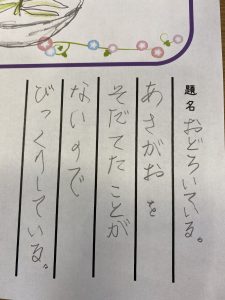 題名 おどろいている。
あさがおを
そだてたことが
ないので
びっくりしている。